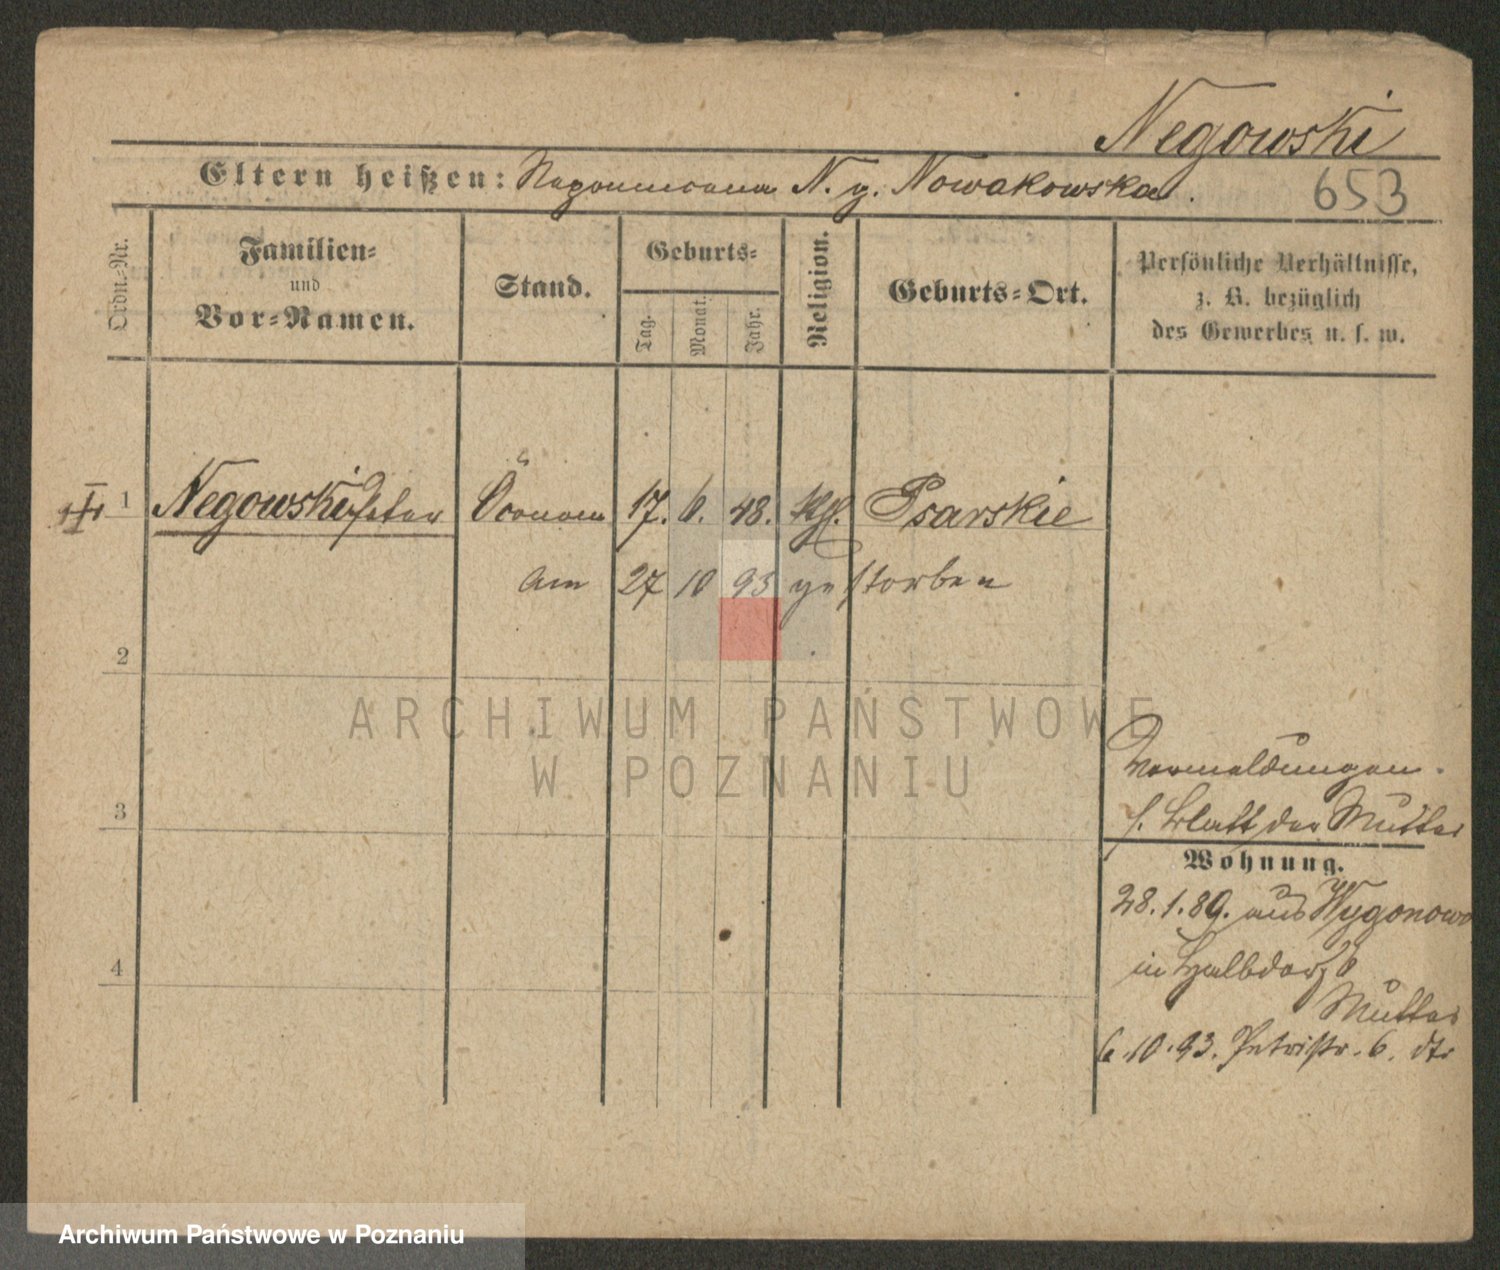 Negowski
Eltern heißen: Nepomucena N. g. Nowakowska.
653
Ordn.-Nr.
Familien-
und
Vor-Namen.
Stand.
Geburts-
Tag.
Monat.
Jahr.
Religion.
Geburts-Ort.
Persönliche Verhältnisse,
z. B. bezüglich
des Gewerbes u. s. w.
1 Negowski Peter Öconom 17. 6. 48. kth. Psarskie
am 27 10 93 gestorben
2
3
4
ARCHIWUM PAŃSTWOWE
W POZNANIU
Vermeldungen.
s. Blatt der Mutter
Wohnung.
28.1.89. aus Wygonowo
in Halbdorf
Mutter
6.10.93. Petristr. 6. dto
Archiwum Państwowe w Poznaniu